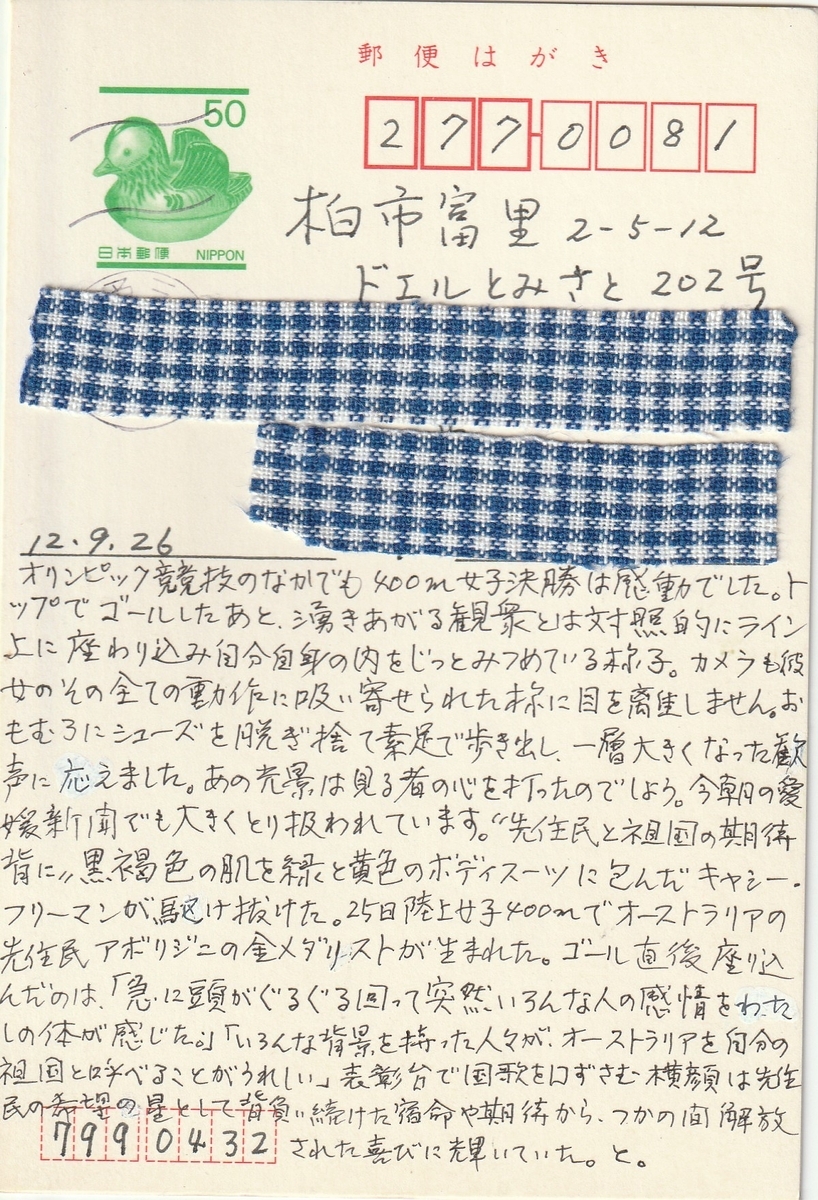 郵便はがき
50
日本郵便 NIPPON
277-0081
柏市富里 2-5-12
ドエルとみさと 202号
12.9.26
オリンピック競技のなかでも400m女子決勝は感動でした。ト
ップでゴールしたあと、湧きあがる観衆とは対照的にライン
上に座わり込み自分自身の内をじっとみつめている様子。カメラも彼
女のその全ての動作に吸い寄せられた様に目を離しません。お
もむろにシューズを脱ぎ捨て素足で歩き出し、一層大きくなった歓
声に応えました。あの光景は見る者の心を打ったのでしょう。今朝の愛
媛新聞でも大きくとり扱われています。“先住民と祖国の期待
背に〃黒褐色の肌を緑と黄色のボディスーツに包んだキャシー・
フリーマンが駆け抜けた。25日陸上女子400mでオーストラリアの
先住民アボリジニの金メダリストが生まれた。ゴール直後座り込
んだのは、「急に頭がぐるぐる回って突然いろんな人の感情をわた
しの体が感じた。」「いろんな背景を持った人々が、オーストラリアを自分の
祖国と呼べることがうれしい」表彰台で国歌を口ずさむ横顔は先住
民の希望の星として背負い続けた宿命や期待から、つかの間解放
された喜びに輝いていた。と。
7990432